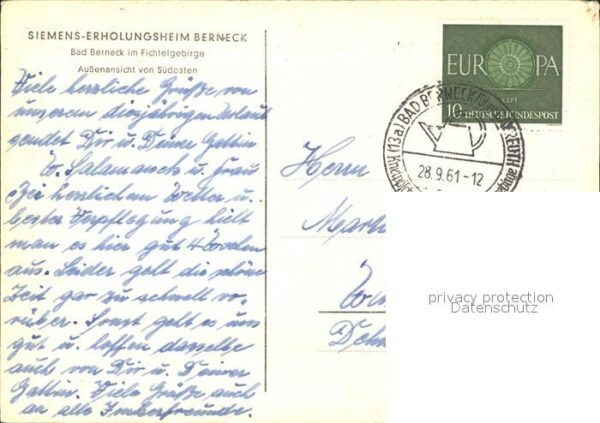 SIEMENS-ERHOLUNGSHEIM BERNECK
Bad Berneck im Fichtelgebirge
Außenansicht von Südosten
Viele herzliche Grüße von
unserem diesjährigen Urlaub
sendet Dir u. Deiner Gattin
W. Salamansch u. Frau
Bei herrlichem Wetter u.
bester Verpflegung hielt
man es hier gut 4 Wochen
aus. Leider geht die schöne
Zeit gar zu schnell vo-
rüber. Sonst geht es uns
gut u. hoffen dasselbe
auch von Dir u. Deiner
Gattin. Viele Grüße auch
an alle Imkerfreunde.
EUROPA
CEPT
10 DEUTSCHE BUNDESPOST
(13a) BAD BERNECK
28.9.61-12
Herrn
privacy protection
Datenschutz